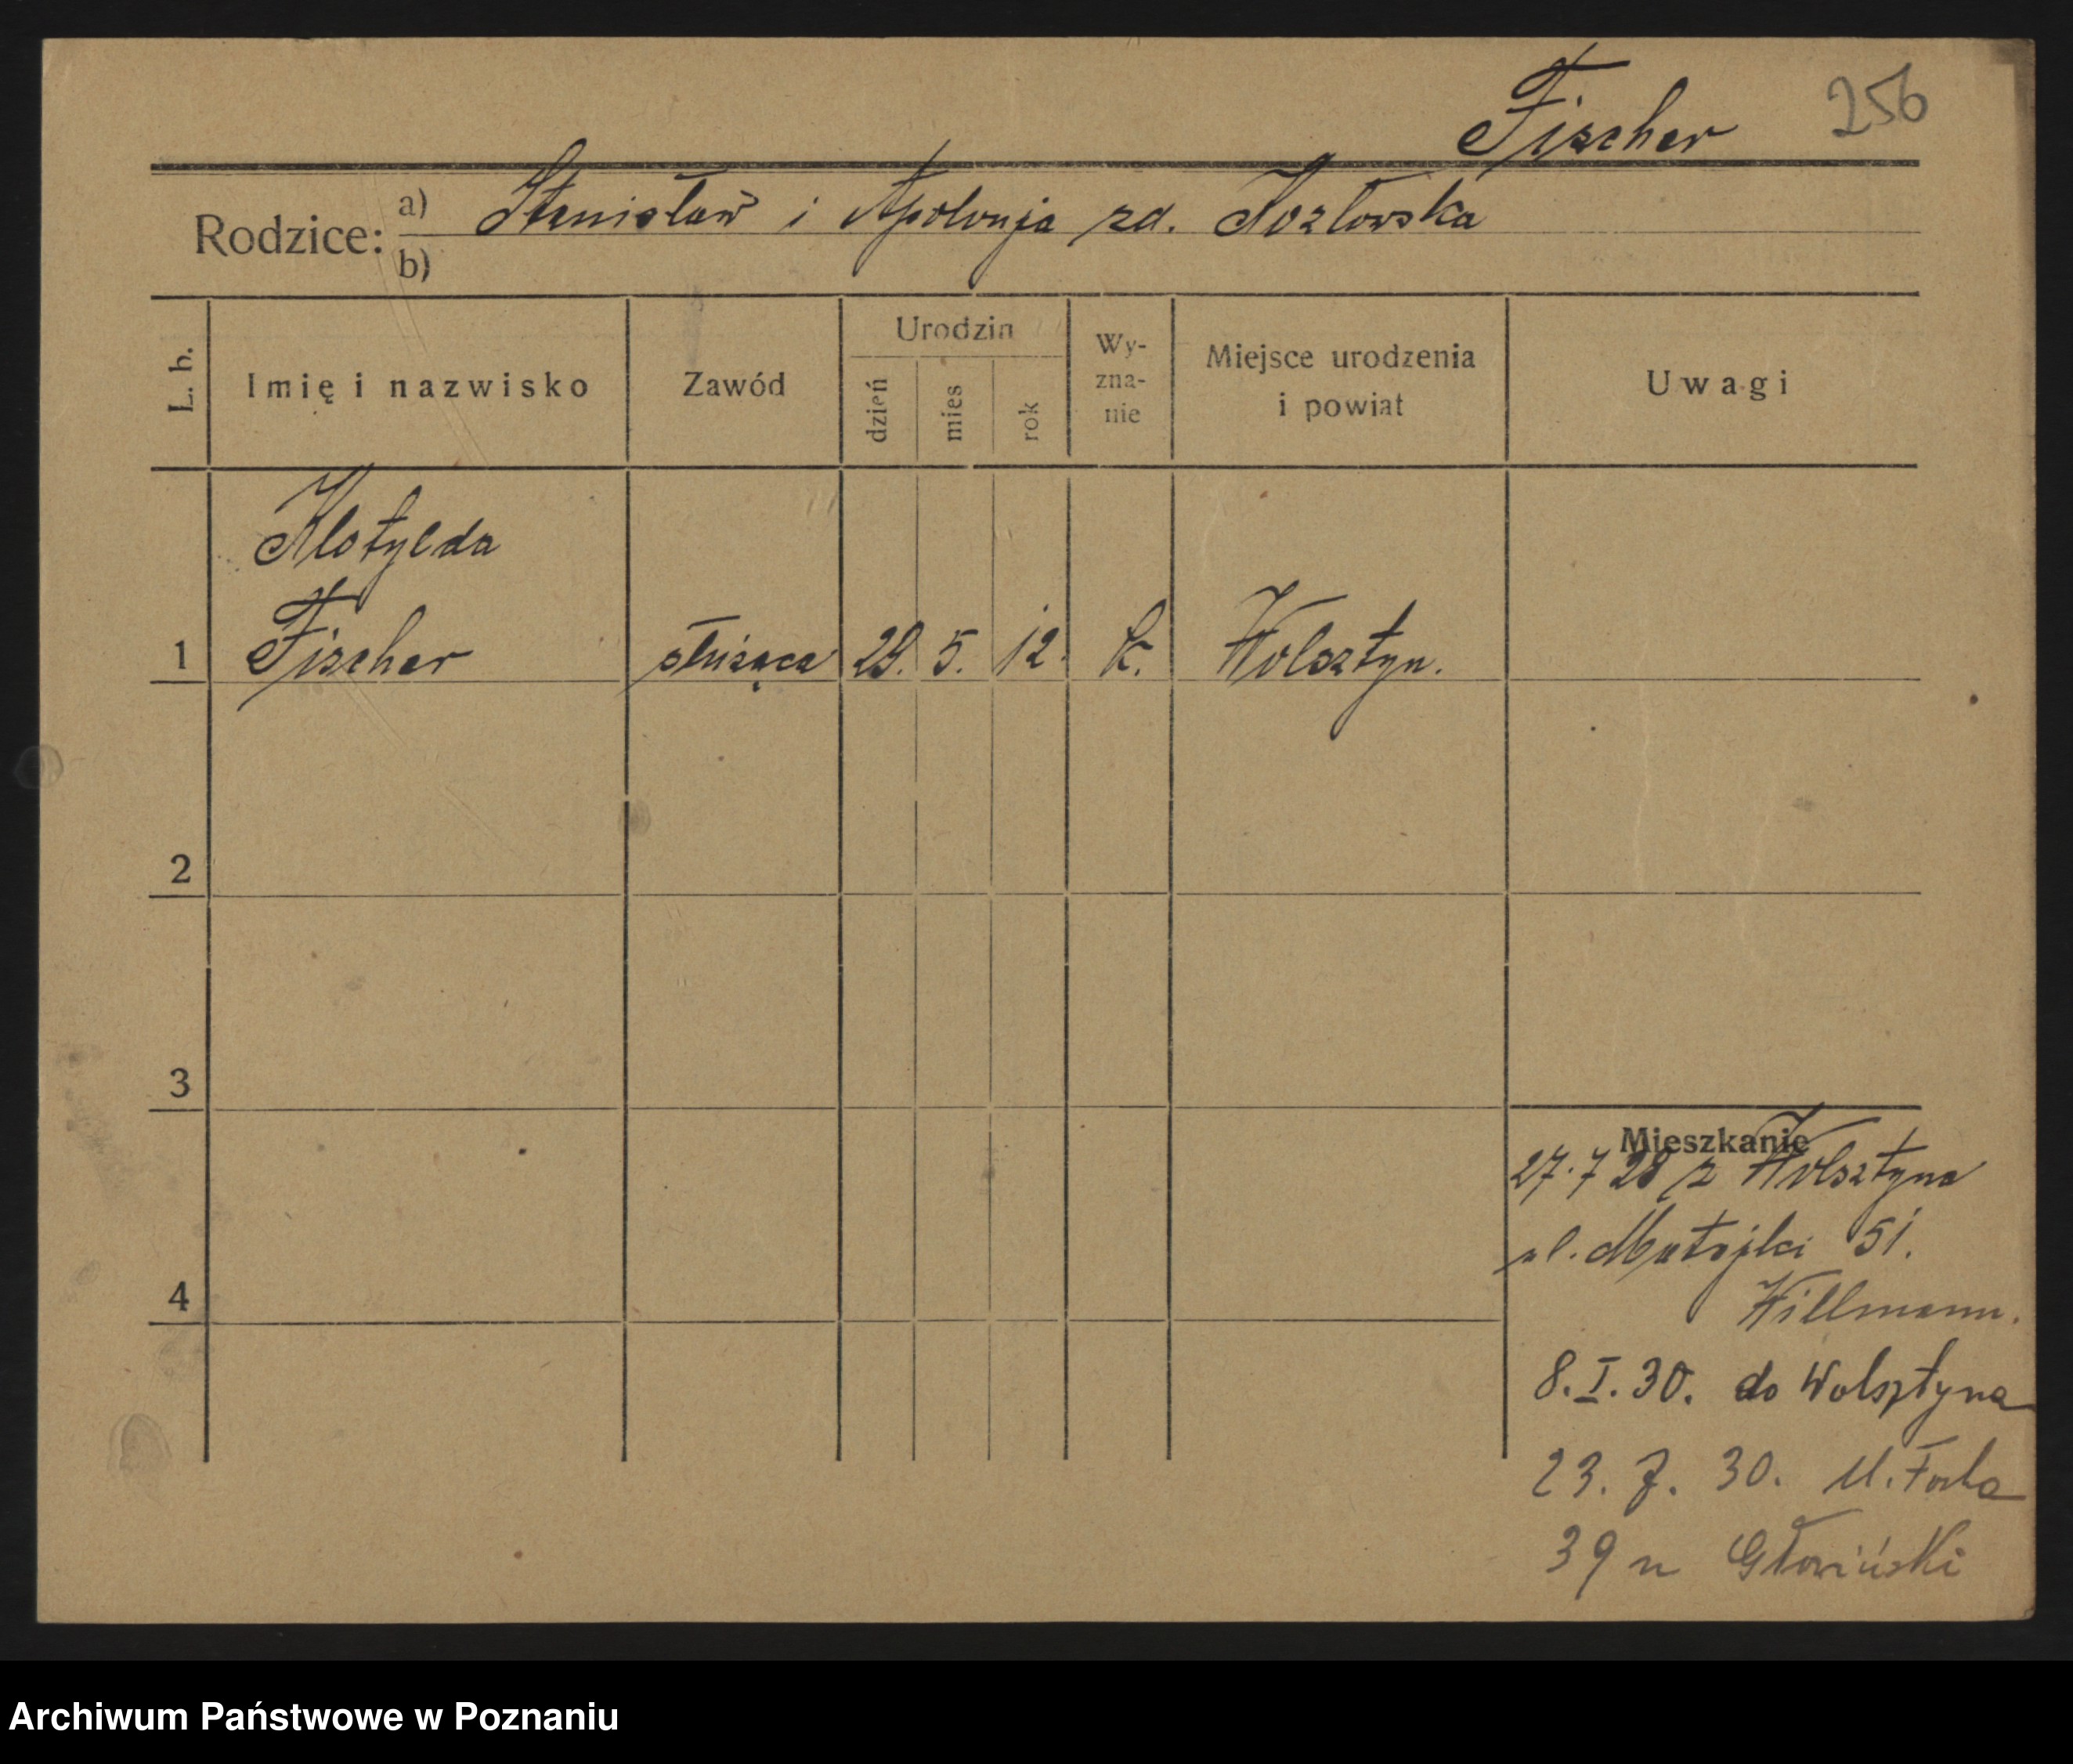 Fischer 256
Rodzice: a) Stanisław i Apolonja zd. Kozłowska
b)
L. b. Imię i nazwisko Zawód Urodzin dzień mies rok Wy-zna-nie Miejsce urodzenia i powiat Uwagi
Klotylda
1 Fischer służąca 29. 5. 12. k. Wolsztyn.
2
3
Mieszkanie
27. 7 28 z Wolsztyna
ul. Matejki 51.
4
Willmann.
8. I. 30. do Wolsztyna
23. 7. 30. M. Focha
39 u Głowiński
Archiwum Państwowe w Poznaniu